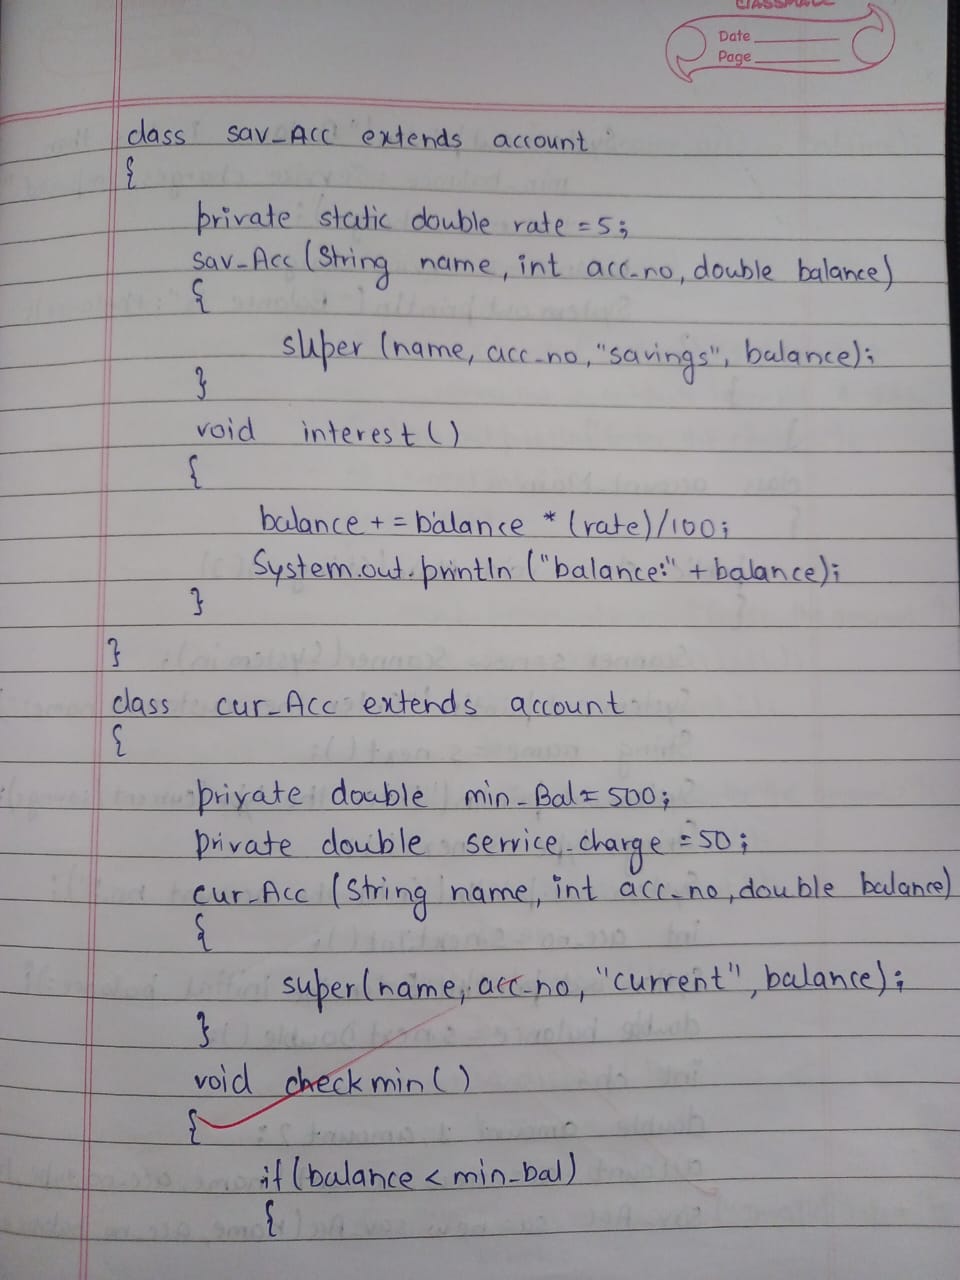 classmate
Date
Page
class sav_Acc extends account
{
private static double rate = 5;
sav_Acc (String name, int acc_no, double balance)
{
super (name, acc_no, "savings", balance);
}
void interest ()
{
balance += balance * (rate)/100;
System.out.println ("balance:" + balance);
}
}
class cur_Acc extends account
{
private double min_Bal = 500;
private double service_charge = 50;
cur_Acc (String name, int acc_no, double balance)
{
super(name, acc_no, "current", balance);
}
void checkmin ()
{
if (balance < min_bal)
{